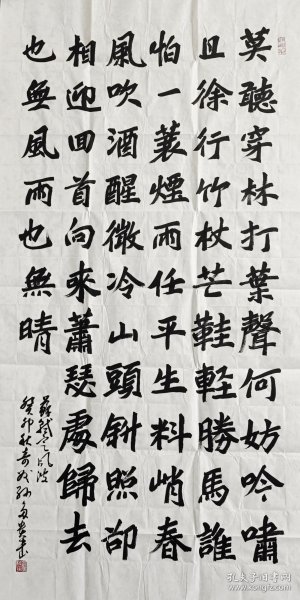 莫聽穿林打葉聲何妨吟嘯
且徐行竹杖芒鞋軽勝馬誰
怕一蓑煙雨任平生料峭春
風吹酒醒微冷山頭斜照卻
相迎回首向來蕭瑟處歸去
也無風雨也無晴
蘇軾定風波
癸卯秋
孔夫子旧书网